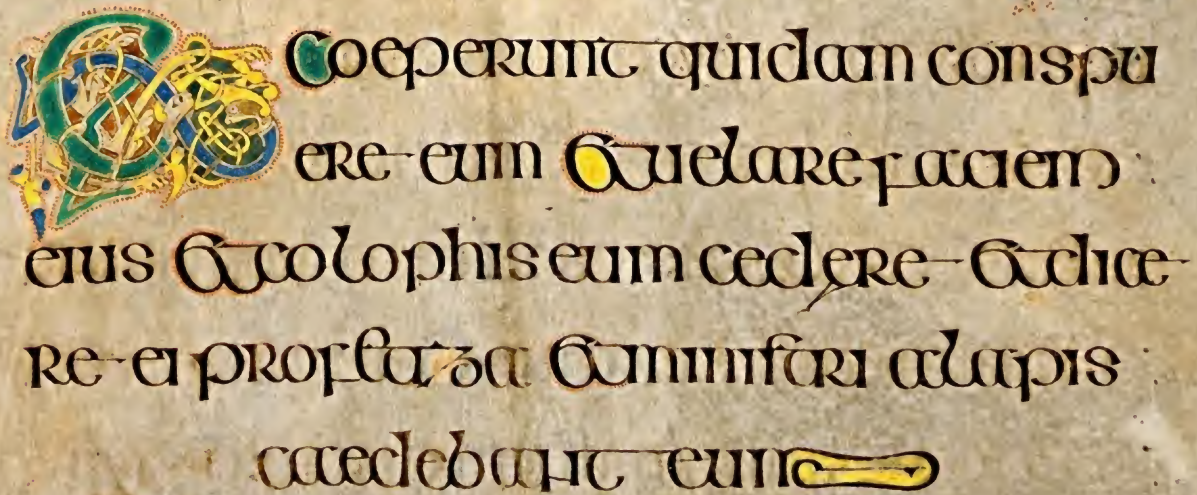 Et coeperunt quidam conspu
ere eum et uelare faciem
eius et colophis eum cedere et dice
re ei profetza et ministri alapis
caedebant eum